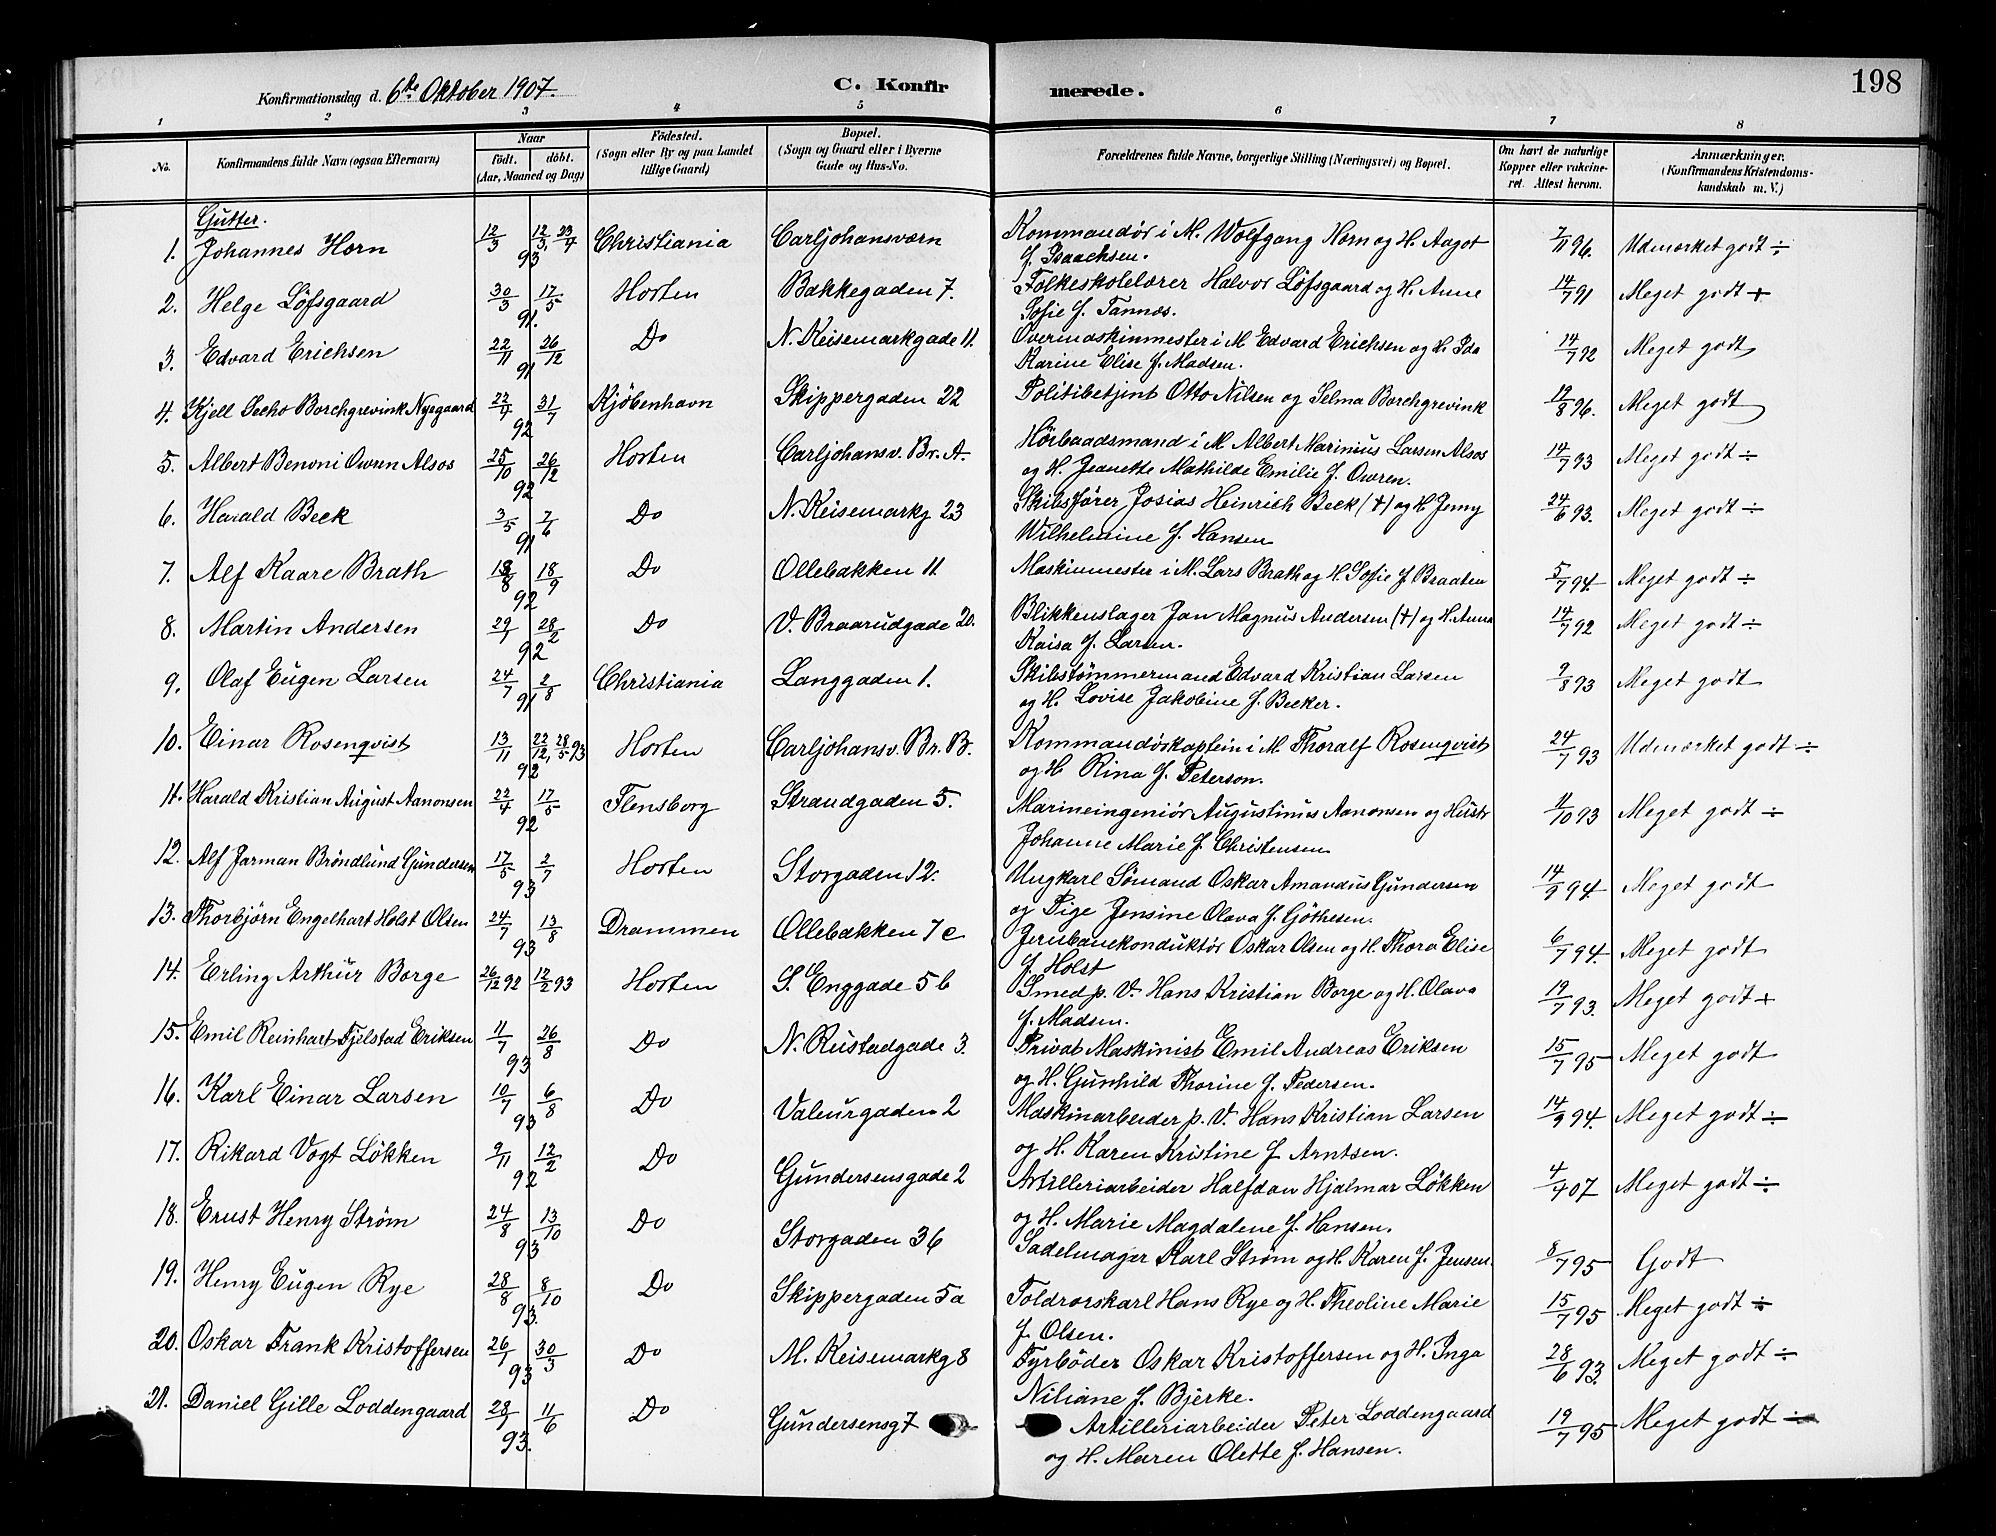 Konfirmationsdag d. 6te Oktober 1907. C. Konfirmerede. 198
1 2 3 4 5 6 7 8
No. Konfirmandens fulde Navn (ogsaa Efternavn) Naar født. døbt. (Aar, Maaned og Dag) Födested. (Sogn eller By og paa Landet tillige Gaard) Bopæl. (Sogn og Gaard eller i Byerne Gade og Hus-No. Forældrenes fulde Navne, borgerlige Stilling (Næringsvei) og Bopæl. Om havt de naturlige Kopper eller vakcineret. Attest herom. Anmærkninger. (Konfirmandens Kristendomskundskab m. V.)
Gutter.
1. Johannes Horn 12/3 93 12/3, 23/4 Christiania Carljohansværn Kommandør i M. Wolfgang Horn og H. Aagot 7/11 96. Udmærket godt ÷
f. Isaachsen.
2. Helge Löfsgaard 30/3 91. 17/5 Horten Bakkegaden 7. Folkeskolelærer Halvor Löfsgaard og H. Anne 14/7 91 Meget godt +
Sofie f. Tannæs.
3. Edvard Erichsen 22/11 91 26/12 Do N. Keisemarkgade 11. Overmaskinmester i M Edvard Erichsen og H. Ida 14/7 92 Meget godt
Karine Elise f. Madsen.
4. Kjell Secho Borchgrevink Nygaard 22/4 92 31/7 Kjöbenhavn Skippergaden 22 Politibetjent Otto Nilsen og Selma Borchgrevink 19/8 96. Meget godt
5. Albert Benoni Owren Alsos 25/10 92 26/12 Horten Carljohansv. Br. A. Hörbaadsmand i M. Albert Marinius Larsen Alsos 14/7 93 Meget godt ÷
og H. Jeanette Mathilde Emilie f. Owren.
6. Harald Beck 3/5 91 7/6 Do N. Keisemarkg 23 Skibsfører Josias Heinrich Beck (+) og H Jenny 24/6 93. Meget godt ÷
Wilhelmine f. Hansen
7. Alf Kaare Brath 18/8 92 18/9 Do Ollebakken 11. Maskinmester i M. Lars Brath og H. Sofie f Braaten 5/7 94. Meget godt ÷
8. Martin Andersen 29/1 92 28/2 Do V. Braarudgade 20. Blikkenslager Jan Magnus Andersen (+) og H. Anna 14/7 92 Meget godt ÷
Kaisa f. Larsen.
9. Olaf Eugen Larsen 24/7 91 2/8 Christiania Langgaden 1. Skibstömmermand Edvard Kristian Larsen 9/8 93 Meget godt
og H. Lovise Jakobine f. Becker.
10. Einar Rosenqvist 13/11 92 22/12, 28/5 93 Horten Carljohansv. Br. B. Kommandørkaptein i M. Thoralf Rosenqvist 24/7 93 Udmærket godt ÷
og H Rina f. Peterson.
11. Harald Kristian August Aanonsen 22/4 92 17/5 Flensborg Strandgaden 5. Marineingeniör Augustinus Aanonsen og Hustr 11/10 93 Meget godt ÷
Johanne Marie f. Christensen
12. Alf Jarman Bröndlund Gundersen 17/5 93 2/7 Horten Storgaden 12. Ungkarl Sömand Oskar Amandus Gundersen 14/9 94. Meget godt
og Pige Jensine Olava f. Göthesen.
13. Thorbjörn Engelhart Holst Olsen 24/7 93 13/8 Drammen Ollebakken 7 c Jernbanekonduktör Oskar Olsen og H. Thora Elise 6/7 94. Meget godt
f. Holst
14. Erling Arthur Borge 26/12 92 12/2 93 Horten S. Enggade 5 b Smed p. V. Hans Kristian Borge og H. Olava 19/7 93. Meget godt +
f. Madsen.
15. Emil Reinhart Fjelstad Eriksen 11/7 93 26/8 Do N. Rustadgade 3. Privat Maskinist Emil Andreas Eriksen 15/7 95 Meget godt
og H. Gunhild Thorine f. Pedersen.
16. Karl Einar Larsen 10/7 93 6/8 Do Valeurgaden 2 Maskinarbeider p. V. Hans Kristian Larsen 14/9 94. Meget godt ÷
og H. Karen Kristine f Arntsen.
17. Rikard Vogt Lökken 9/11 92 12/2 Do Gundersensgade 2 Artilleriarbeider Halfdan Hjalmar Lökken 4/4 07 Meget godt ÷
og H. Marie Magdalene f. Hansen.
18. Ernst Henry Ström 24/8 93 13/10 Do Storgaden 36 Sadelmager Karl Ström og H. Karen f. Jensen. 8/7 95 Godt
19. Henry Eugen Rye 28/8 93. 8/10 Do Skippergaden 5a Toldrorskarl Hans Rye og H. Theoline Marie 15/7 95 Meget godt ÷
f. Olsen.
20. Oskar Frank Kristoffersen 26/1 93 30/3 Do M. Keisemarkg 8 Fyrböder Oskar Kristoffersen og H. Inga 28/6 93. Meget godt ÷
Niliane f. Bjerke.
21. Daniel Gille Loddengaard 28/1 93. 11/6 Do Gundersensg 7 Artilleriarbeider Peter Loddengaard 19/7 95 Meget godt ÷
og H. Maren Olette f. Hansen.